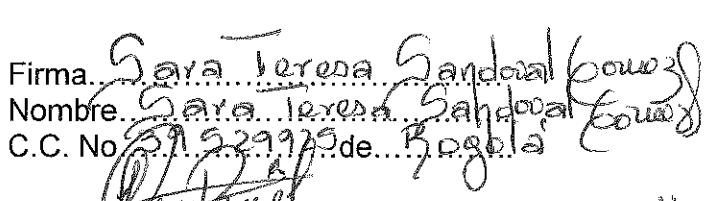 Firma..Sara Teresa Sandoval Gomez
Nombre..Sara Teresa Sandoval Gomez
C.C. No 39 529 925 de Bogotá